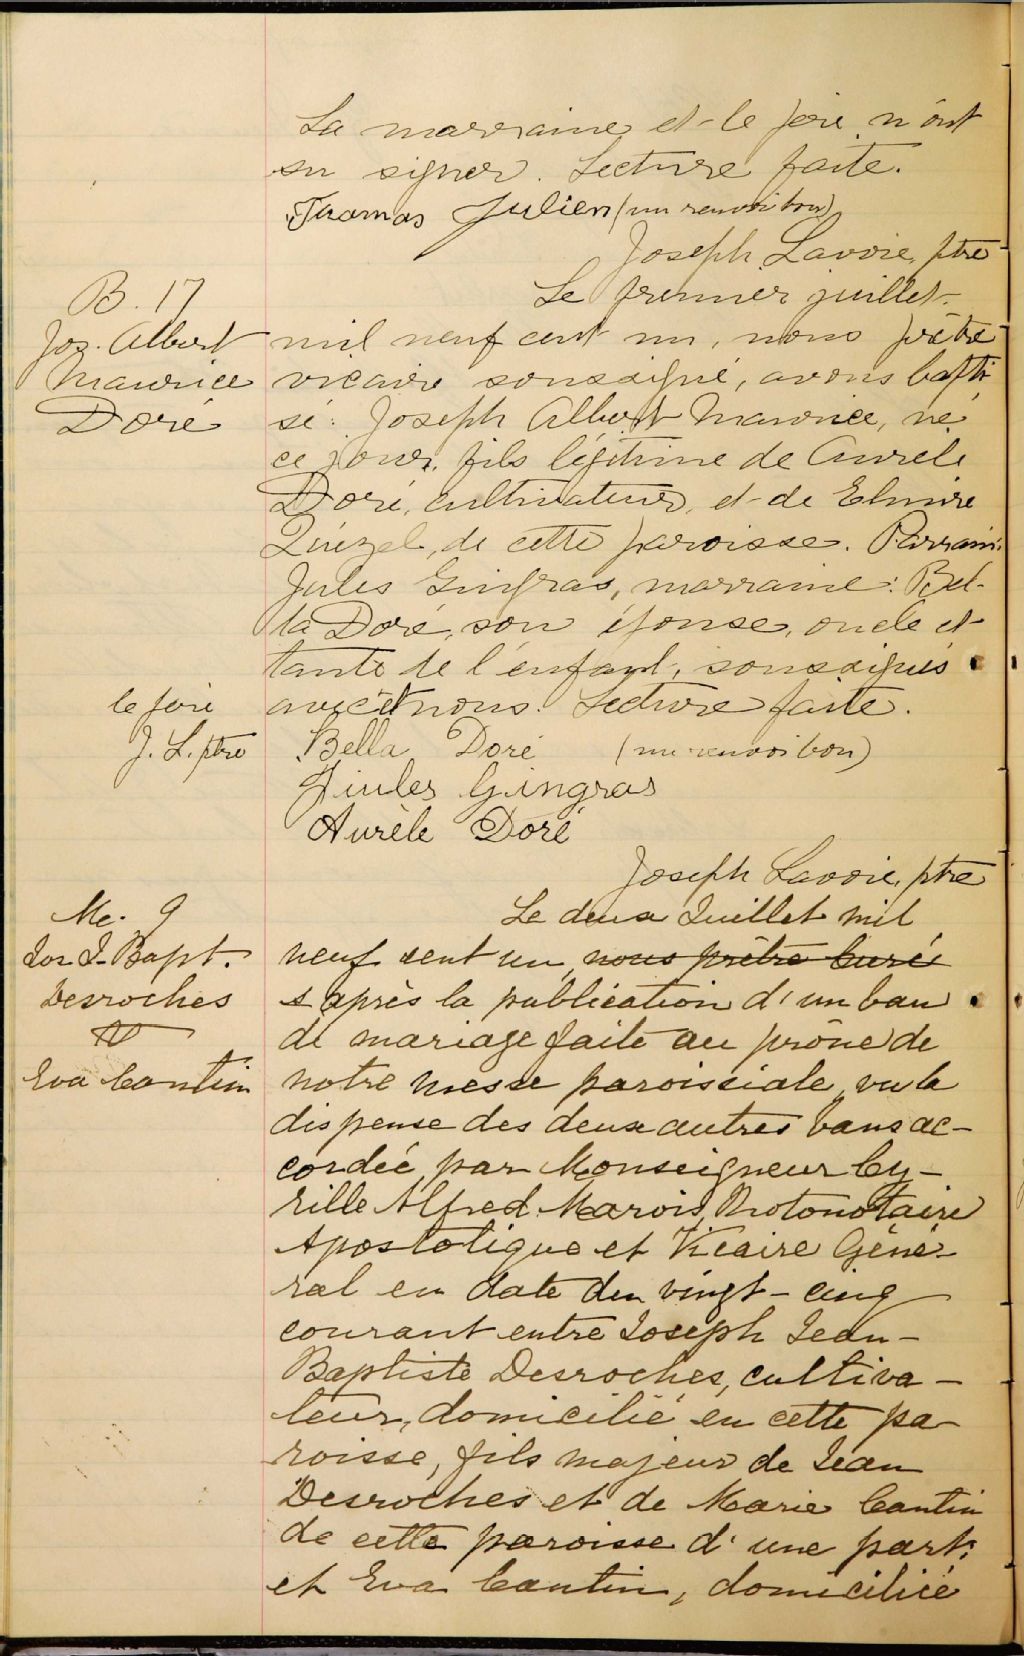 La marraine et le père n'ont
su signer. Lecture faite.
Thomas Julien (un renvoi bon)
Joseph Lavoie, ptre
B. 17
Jos. Albert
Maurice
Doré
Le premier juillet
mil neuf cent un, nous prêtre
vicaire soussigné, avons bapti
sé: Joseph Albert Maurice, né
ce jour, fils légitime de Aurèle
Doré, cultivateur, et de Elmire
de cette paroisse. Parrain:
Jules Gingras, marraine: Bel-
la Doré, son épouse, oncle et
tante de l'enfant, soussignés
avec et nous. Lecture faite.
le père
J. L. ptre
Bella Doré (un renvoi bon)
Jiules Gingras
Aurèle Doré
Joseph Lavoie, ptre
M. 9
Jos J. Bapt.
Desroches
&
Eva Cantin
Le deux Juillet mil
neuf cent un, nous prêtre Curé
s après la publication d'un ban
de mariage faite au prône de
notre messe paroissiale, vu la
dispense des deux autres bans ac-
cordée par Monseigneur Cy-
rille Alfred Marois, Protonotaire
Apostolique et Vicaire Géné-
ral en date du vingt-cinq
courant entre Joseph Jean-
Baptiste Desroches, cultiva-
teur, domicilié en cette pa-
roisse, fils majeur de Jean
Desroches et de Marie Cantin
de cette paroisse d'une part;
et Eva Cantin, domiciliée